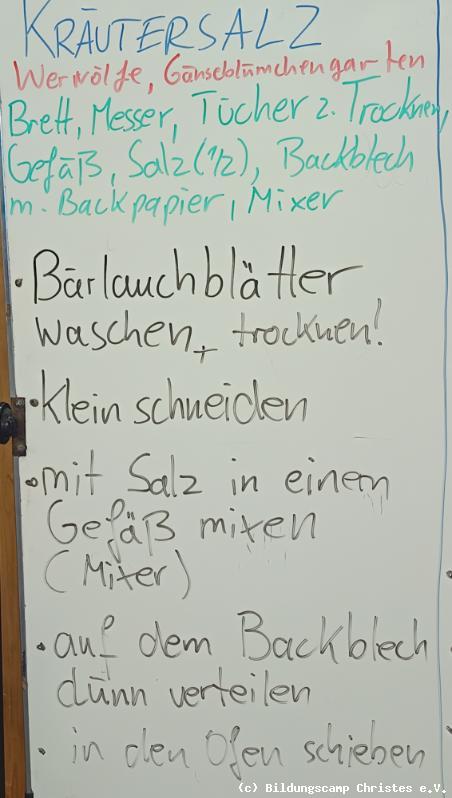 KRÄUTERSALZ
Werwölfe, Gänseblümchengarten
Brett, Messer, Tücher z. Trocknen,
Gefäß, Salz (1/2), Backblech
m. Backpapier, Mixer
• Bärlauchblätter
waschen + trocknen!
• klein schneiden
• mit Salz in einem
Gefäß mixen
(Mixer)
• auf dem Backblech
dünn verteilen
• in den Ofen schieben
(c) Bildungscamp Christes e.V.